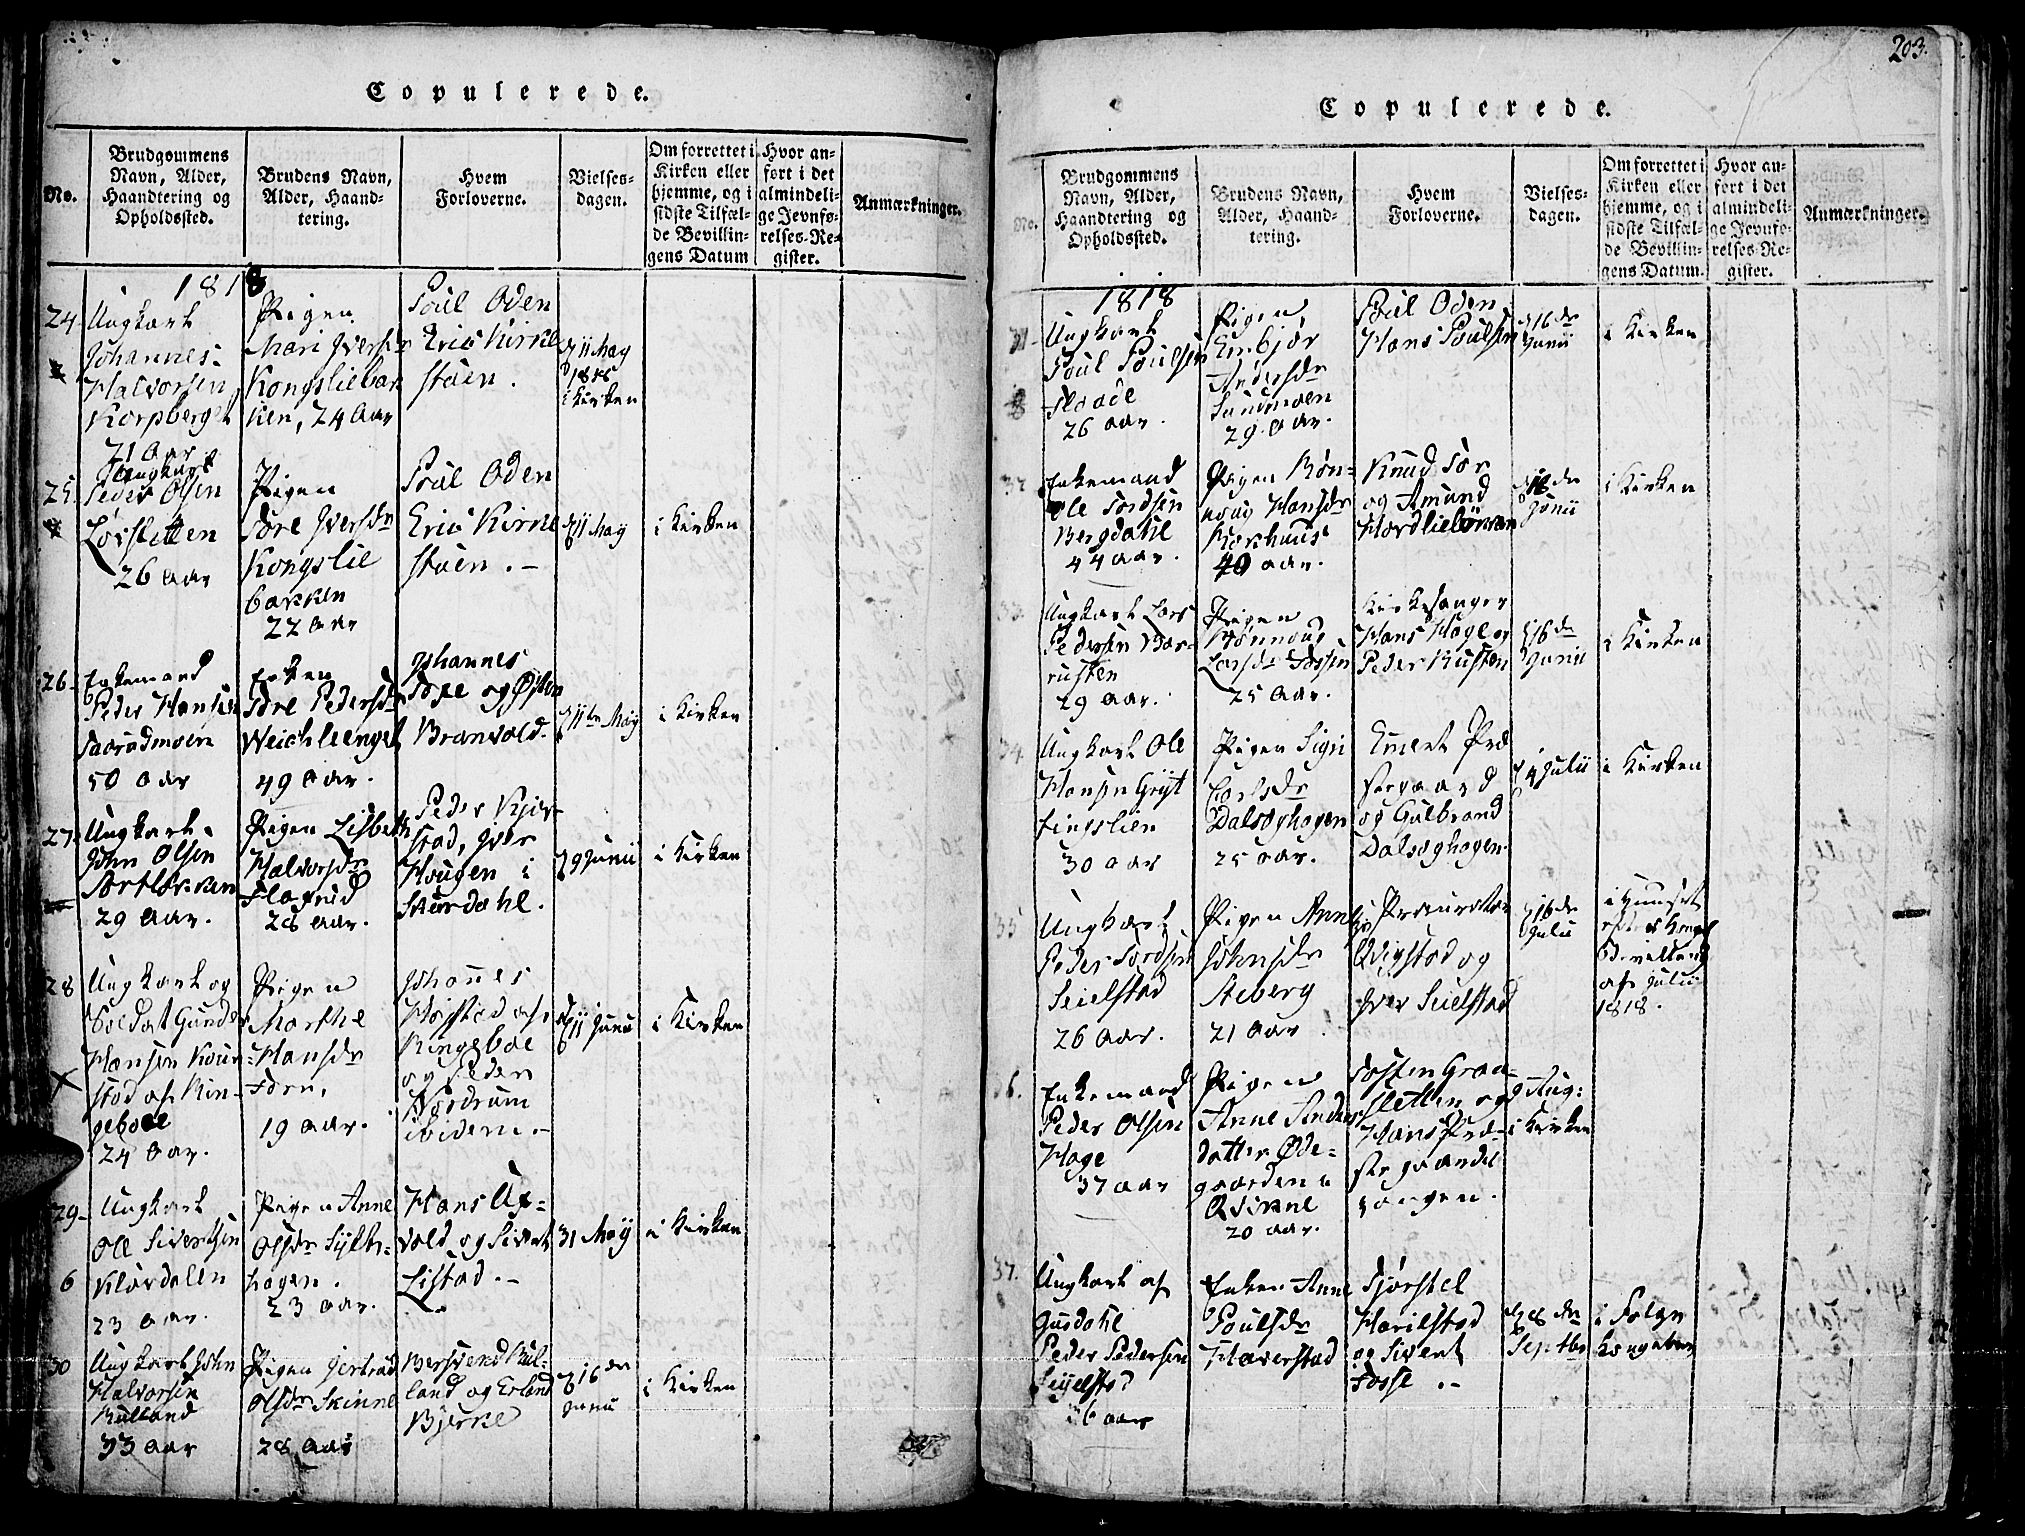 Copulerede.
No.
Brudgommens
Navn, Alder,
Haandtering og
Opholdssted.
Brudens Navn,
Alder, Haand-
tering.
Hvem
Forloverne.
Vielses-
dagen.
Om forrettet i
Kirken eller
hjemme, og i
sidste Tilfæl-
de Bevillin-
gens Datum
Hvor an-
ført i det
almindeli-
ge Jevnfø-
relses-Re-
gister.
Anmærkninger.
1818
24
Ungkarl
Johannes
Halvorsen
Korpberget
21 Aar
Pigen
Mari Iversdr
Kongsliebak
ken, 24 Aar
Poul Oden
Eric Kirke
stuen.
d 11 May
1818
i Kirken
25.
Ungkarl
Peder Olsen
26 Aar
Pigen
Tore Iversdr
Kongslie
bakken
22 Aar
Poul Oden
Eric Kirke
stuen.-
d 11 May
i Kirken
26-
Enkemand
Peder Hansen
50 Aar
Enken
Tore Pedersdr
Weichleenget
49 Aar.
Johannes
Toxe og Østen
Branvold.
d 11te May
i Kirken
27.
Ungkarl
John Olsen
29 Aar.
Pigen Lisbeth
Halvorsdr
28 Aar.
Peder Kjer-
stad, Iver
Hougen i
Sturdahl.
d 9 Junii
i Kirken
28
Ungkarl og
Soldat Gunder
Hansen Kour-
stad af Rin-
geboe
24 Aar.
Pigen
Marthe
Hansdr
19 Aar.
Johannes
af
Ringeboe
og Peder
Nordrum
ibidem.-
d 11 Junii
i Kirken
29-
6
Ungkarl
Ole Sivertsen
Klørdalen
23 Aar.
Pigen Anne
Olsdr Sylte-
hagen.
23 Aar.
Hans Ux-
vold og Sivert
Listad.-
31 May
i Kirken
30
Ungkarl John
Halvorsen
Rulland
33 Aar
Pigen Jertrud
Olsdr Skinne
28 Aar
Bersvend Rul-
land og Erland
Bjerke
d 16de
Junii
i Kirken
203.
Copulerede.
No.
Brudgommens
Navn, Alder,
Haandtering og
Opholdssted.
Brudens Navn,
Alder, Haand-
tering.
Hvem
Forloverne.
Vielses-
dagen.
Om forrettet i
Kirken eller
hjemme, og i
sidste Tilfæl-
de Bevillin-
gens Datum.
Hvor an-
ført i det
almindeli-
ge Jevnfø-
relses-Re-
gister.
Anmærkninger.
1818
31-
Ungkarl
Poul Poulsen
Flaade
26 Aar.
Pigen
Embjør
Andersdr
Sundmoen
29 Aar.
Poul Oden
Hans Poulsen
d 16de
Junii
i Kirken
32
Enkemand
Ole Tordsen
Bergdahl
44 Aar.
Pigen Røn-
noug Hansdr
Korshuus
40 Aar.
Knud Tor
og Amund
d 18de
Junii
i Kirken
33.
Ungkarl Lars
Pedersen Bør-
rusten
29 Aar.
Pigen
Rønnoug
Larsdr Fossen
25 Aar.
Kirkesanger
Hans Hage og
Peder Rusten
d 16de
Junii
i Kirken
34.
Ungkarl Ole
Hansen Gryt
tingslien
30 Aar
Pigen Sigri
Carlsdr
Dalseghagen
25 Aar.
Emert Præ
stegaard
og Gulbrand
Dalseghagen.
d 4 Julii
i Kirken
35
Ungkarl
Peder Tordsen
Seielstad
26 Aar.
Pigen Anne
Johnsdr
Aeberg
21 Aar.
Procurator
Qvigstad og
Iver Seielstad
d 16de
Julii
i Huuset
efter Kongel
Bevilling
af Julii
1818.
36.
Enkemand
Peder Olsen
Hage
37 Aar
Pigen
Anne Anders
datter Øde-
gaarden i
Qvikne
20 Aar.
Tosten Graa-
sletten og
Hans Præ-
stegaardel
vangen.
9 Aug:
i Kirken
37.
Ungkarl af
Gusdahl
Peder Pedersen
Seijelstad
26 Aar
Enken Anne
Poulsdr
Haverstad
Tjøstel
Harilstad
og Sivert
Fosse.-
d 28de
Septbr
i Følge